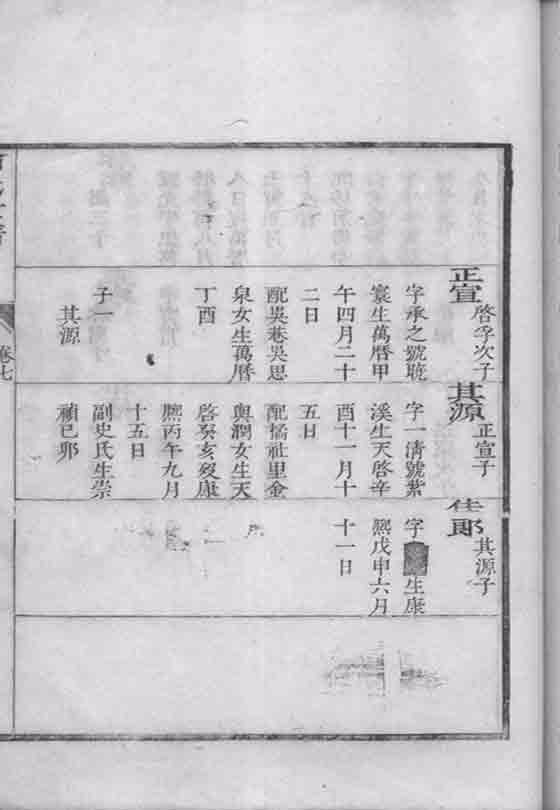 正宣
啓孚次子
字承之號聴
寰生萬曆甲
午四月二十
二日
配吳巷吳思
泉女生萬曆
丁酉
子一
其源
其源
正宣子
字一清號紫
溪生天啓辛
酉十一月十
五日
配橘社里金
與潤女生天
啓癸亥歿康
熈丙午九月
十五日
副史氏生崇
禎己卯
佳郎
其源子
字
生康
熈戊申六月
十一日
卷七